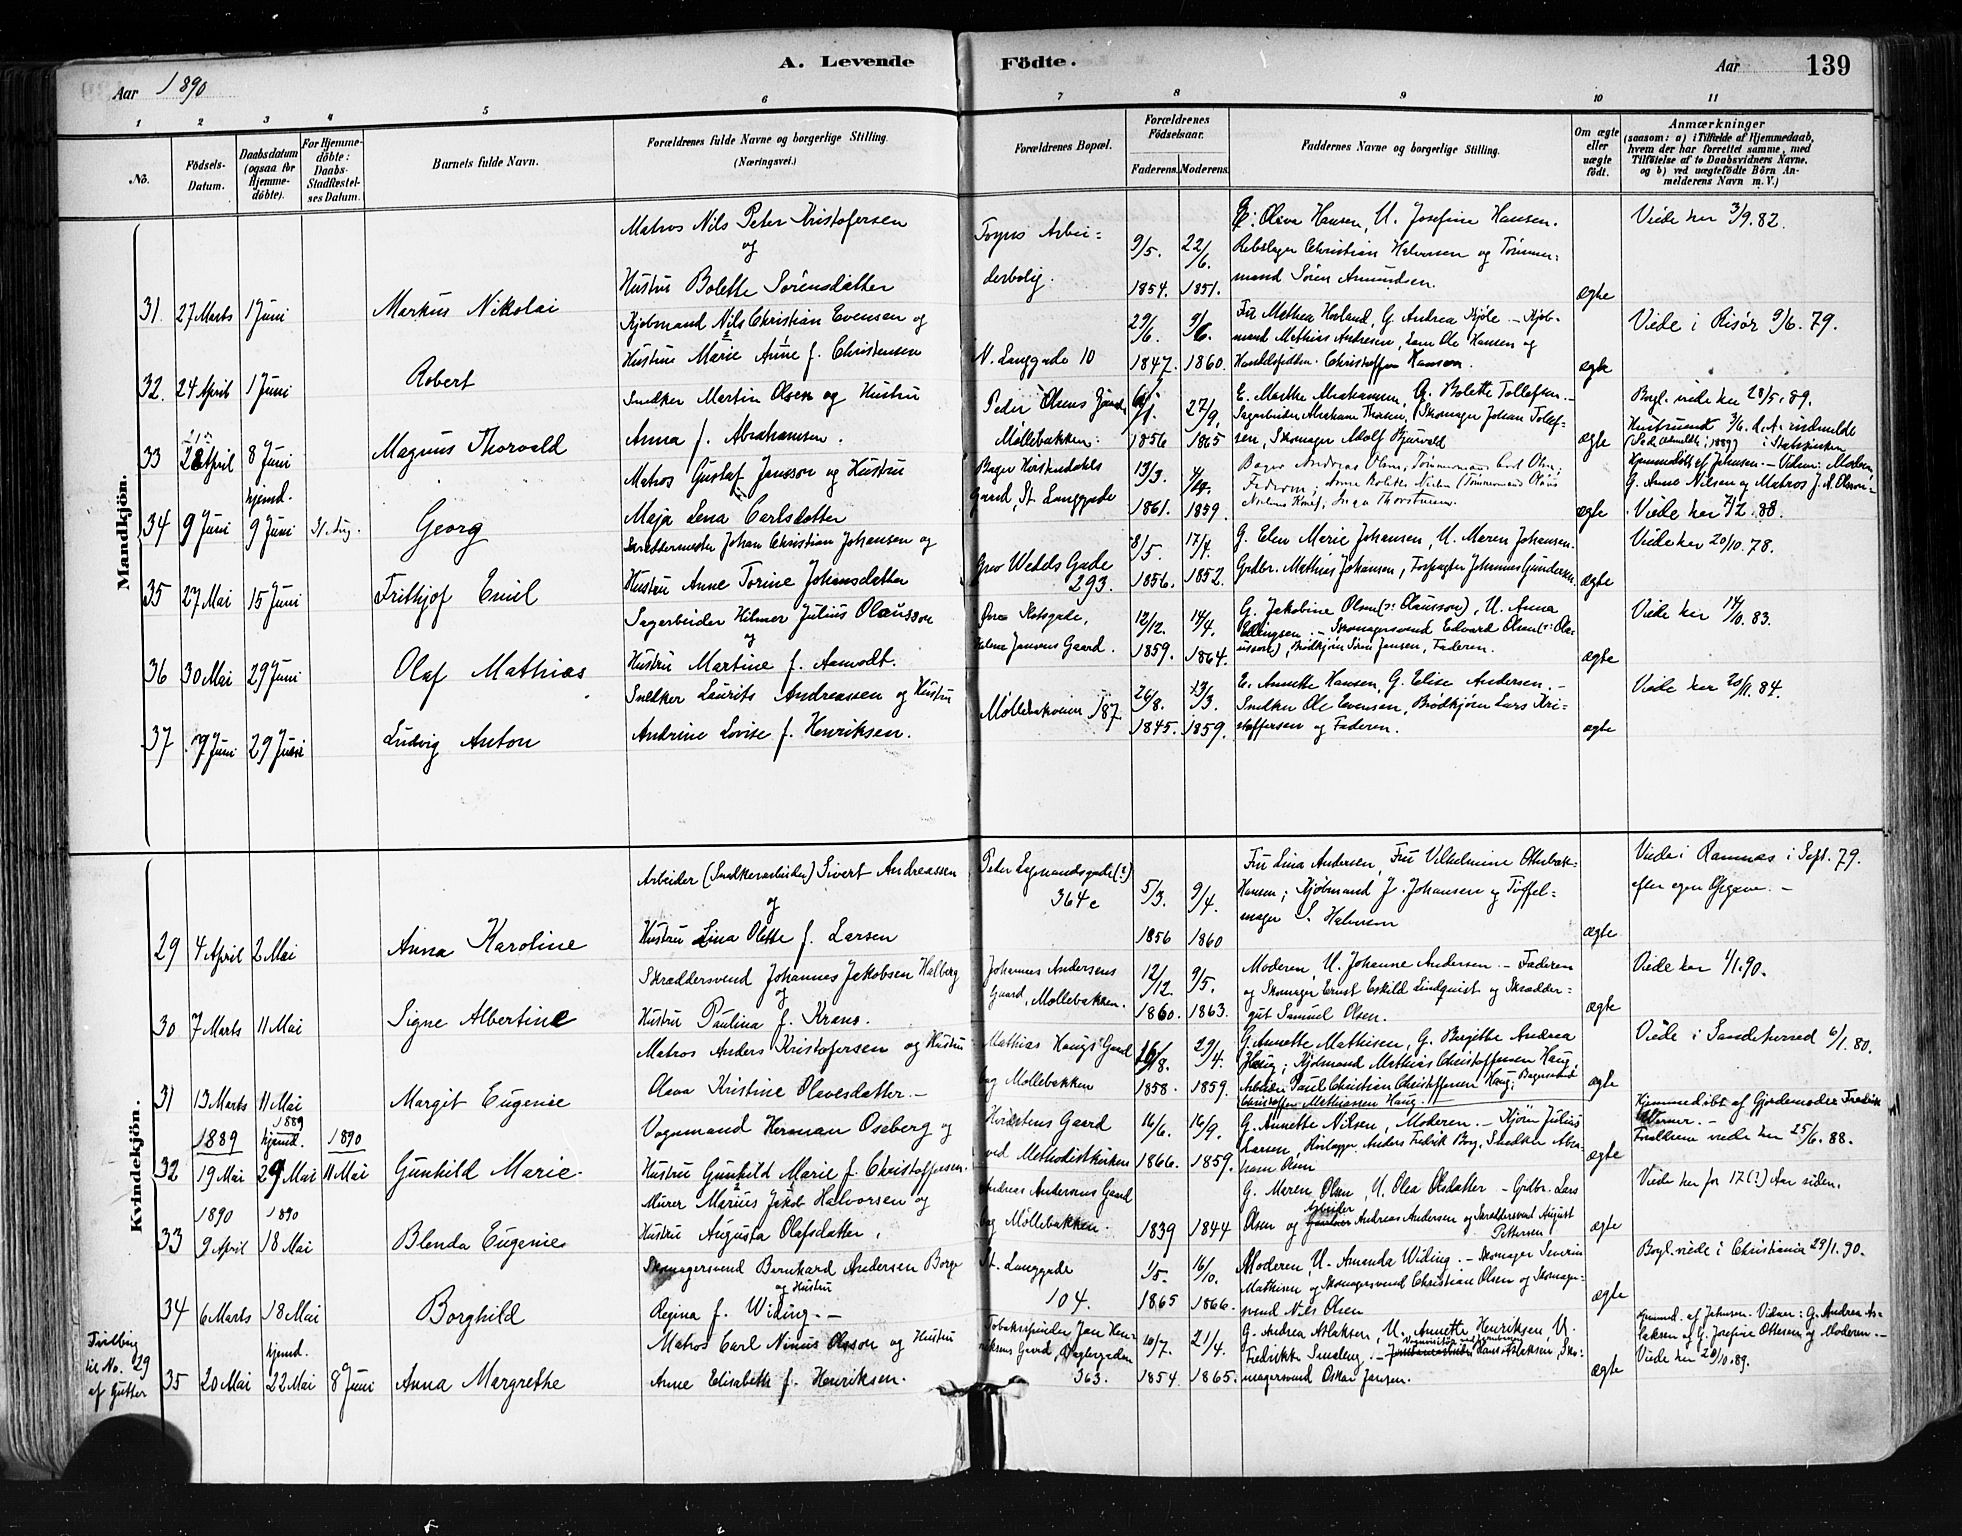 A. Levende Födte.
Aar 1890
Aar 139
1 2 3 4 5 6 7 8 9 10 11
No.
Födsels-Datum.
Daabsdatum (ogsaa for Hjemme-döbte).
For Hjemme-döbte: Daabs-Stadfæstel-ses Datum.
Barnets fulde Navn.
Forældrenes fulde Navne og borgerlige Stilling. (Næringsvei.)
Forældrenes Bopæl.
Forældrenes Födselsaar.
Faderens. Moderens.
Faddernes Navne og borgerlige Stilling.
Om ægte eller uægte födt.
Anmærkninger
(saasom: a) i Tilfælde af Hjemmedaab,
hvem der har forrettet samme, med
Tilföielse af to Daabsvidners Navne,
og b) ved uægtefödte Börn An-
melderens Navn m. V.)
Mandkjön.
31. 27 Marts 1 Juni Markus Nikolai
Matros Nils Peter Kristofersen
og
Hustru Bolette Sørensdatter
Foyns Arbei=
derbolig.
9/5. 1854. 22/6. 1851.
E: Oliva Hansen, U. Josefine Hansen.
Rebslager Christian Halvorsen og Tømmer-
mand Søren Amundsen.
ægte
Viede her 3/9. 82.
32. 24 April 1 Juni Robert
Kjøbmand Nils Christian Evensen og
Hustru Marie Anne f. Christensen
N. Langgade 10
29/6. 1847. 9/6. 1860.
Fru Mathea Hovland, G. Andrea Kjøle - Kjøb-
mand Mathias Andresen, Lars Ole Hansen og
Handelsfuldm. Christoffer Hanson.
ægte
Viede i Risør 9/6. 79.
33 8 Juni Magnus Thorvald
Snedker Martin Olsen og Hustru
Anna f. Abrahamsen.
Peder Olsens Gaard
Møllebakken.
1856 27/9. 1865
E. Marthe Abrahamsen, G. Bolette Tollefsen.
Sagarbeider Abraham Thorsen, Skomager Johan Tollef-
sen, Skomager Adolf Bjurvald
ægte
Borgl. viede her 28/5. 89.
34 9 Juni hjemd. 9 Juni 31. Aug. Georg
Matros Gustaf Jansson og Hustru
Maja Lena Carlsdatter
Gaard, St. Langgade
13/3. 1861. 1859.
Bager Andreas Olsen, Tømmermand Carl Olsen,
Faderen; Anne Bolette Nilsen
Inga Thorstensen.
ægte
Hjemmedøbt af Johnsen. - Vidner: Moderen,
G. Anne Nilsen og Matros J. A. Olsson.
Viede her 7/2. 88.
35 27 Mai 15 Juni Frithjof Emil
Skræddermester Johan Christian Johansen og
Hustru Anne Torine Johansdatter
Grev Wedels Gade
293.
8/5. 1856. 17/4. 1852.
G. Elen Marie Johansen, U. Maren Johansen.
Grdbr. Mathias Johansen, Johannes Gundersen.
ægte
Viede her 20/10. 78.
36 30 Mai 29 Juni Olaf Mathias
Sagarbeider Hilmer Julius Olausson
og
Hustru Martine f. Aamodt.
Jansens Gaard.
12/12. 1859. 14/4. 1864.
G. Jakobine Olsen (ɔ: Olausson), U. Anna
Ellingsen. - Skomagersvend Edvard Olsen (ɔ: Ola-
usson), Brødkjører Søren Jansen, Faderen.
ægte
Viede her 14/10. 83.
37 7 Juni 29 Juni Ludvig Anton
Snedker Laurits Andreassen og Hustru
Andrine Lovise f. Henriksen.
Møllebakveien 187
26/8. 1845. 13/3. 1859.
E. Annette Hansen, G. Elise Andersen. -
Snedker Ole Evensen, Brødkjører Lars Kri-
stoffersen og Faderen.
ægte
Viede her 20/11. 84.
Kvindekjön.
29 4 April 2 Mai Anna Karoline
Arbeider (Snedkerarbeider) Sivert Andreassen
og
Hustru Lina Olette f. Larsen
364 c
5/3. 1856 9/4. 1860
Fru Lina Andersen, Fru Vilhelmine
Hansen; Kjøbmand J. Johansen og Tøffel-
mager S. Halvorsen
ægte
Viede i Ramnæs i Sept. 79.
efter egen Opgave. -
30 7 Marts 11 Mai Signe Albertine
Skræddersvend Johannes Jakobsen Halberg
og
Hustru Paulina f. Krans.
Johannes Andersens
Gaard, Møllebakken.
12/12. 1860. 9/5. 1863.
Moderen, U. Johanne Andersen. - Faderen
og Skomager Ernst Eskild Lindquist og Skrædder=
gut Samuel Olsen.
ægte
Viede her 1/1. 90.
31 13 Marts 11 Mai Margit Eugenie
Matros Anders Kristofersen og Hustru
Olava Kristine Olavesdatter. -
Mathias Haugs Gaard
bag Møllebakken
16/8. 1858. 29/4. 1859.
G. Annette Mathisen, G. Bergitte Andrea
Haug; Kjøbmand Mathias Christoffersen Haug
Arbeider Paul Christian Christoffersen Haug; Bagersvend
Christoffer Mathiassen Haug.
ægte
Viede i Sandeherred 6/1. 80.
32 1889 19 Mai 1889 hjemd. 29 Mai 1890 11 Mai Gunhild Marie
Vognmand Herman Oseberg og
Hustru Gunhild Marie f. Christoffersen.
Gaard
ved Methodistkirken
16/6. 1866. 16/9. 1859.
G. Annette Nilsen, Moderen. - Kjører Julius
Larsen, Anders Fredrik Borg, Snedker Abra-
ham Olsen
ægte
Hjemmedøbt af Gjordemoder Fredrik
Werner. -
Forældrene viede her 25/6. 88.
33 1890 9 April 1890 18 Mai Blenda Eugenie
Murer Marius Jakob Halvorsen og
Hustru Augusta Olafsdatter.
Andreas Andersens Gaard
bag Møllebakken.
1839 1844
G. Maren Olsen, U. Olea Olsdatter - Grdbr. Lars
Olsen og Arbeider Andreas Andersen og Skræddersvend August
Pettersen
ægte
Viede her for 12 (?) Aar siden.
34 6 Marts 18 Mai Borghild
Skomagersvend Bernhard Andersen Borge
og Hustru
Regina f. Widing. -
St. Langgade
104.
1/5. 1865 16/10. 1866.
Moderen, U. Amanda Widing. - Skomager Severin
Mathisen og Skomagersvend Christian Olsen og Skomager-
svend Nils Olsen
ægte
Borgl. viede i Christiania 29/1. 90.
Tvilling
til No. 29
af Gutter
35 20 Mai hjemd. 22 Mai 8 Juni Anna Margrethe
Matros Carl Ninus Olsson og Hustru
Anne Elisabeth f. Henriksen.
Tobaksspinder Jan Hen-
riksens Gaard,
363.
10/7. 1854. 21/4. 1865.
G. Andrea Aslaksen, U. Annette Henriksen, U.
Fredrikke Smaberg. - Hans Aslaksen, Sko-
magersvend Oskar Jansen.
ægte
hjemmd. af Johnsen. Vidner: G. Andrea As-
laksen og G. Josefine Ottersen og Moderen. -
Viede her 20/10. 89.